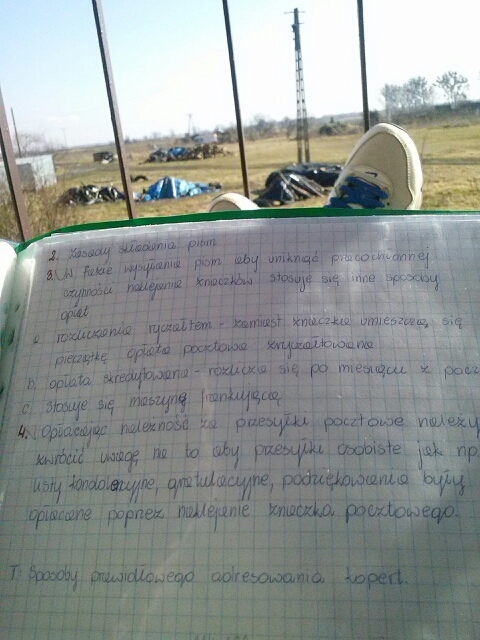 2. Zasady składania pism
3. W fazie wysyłania pism aby uniknąć pracochłonnej
czynności naklejania znaczków stosuje się inne sposoby
opłat
a rozliczenia ryczałtem - zamiast znaczka umieszcza się
pieczątkę opłata pocztowa zryczałtowana
b. opłata skredytowana - rozlicza się po miesiącu z pocz
c. stosuje się maszynę frankującą
4. Opłacając należność za przesyłki pocztowe należy
zwrócić uwagę na to aby przesyłki osobiste jak np
listy kondolencyjne, gratulacyjne, podziękowania były
opłacane poprzez naklejenie znaczka pocztowego.
T: Sposoby prawidłowego adresowania kopert.